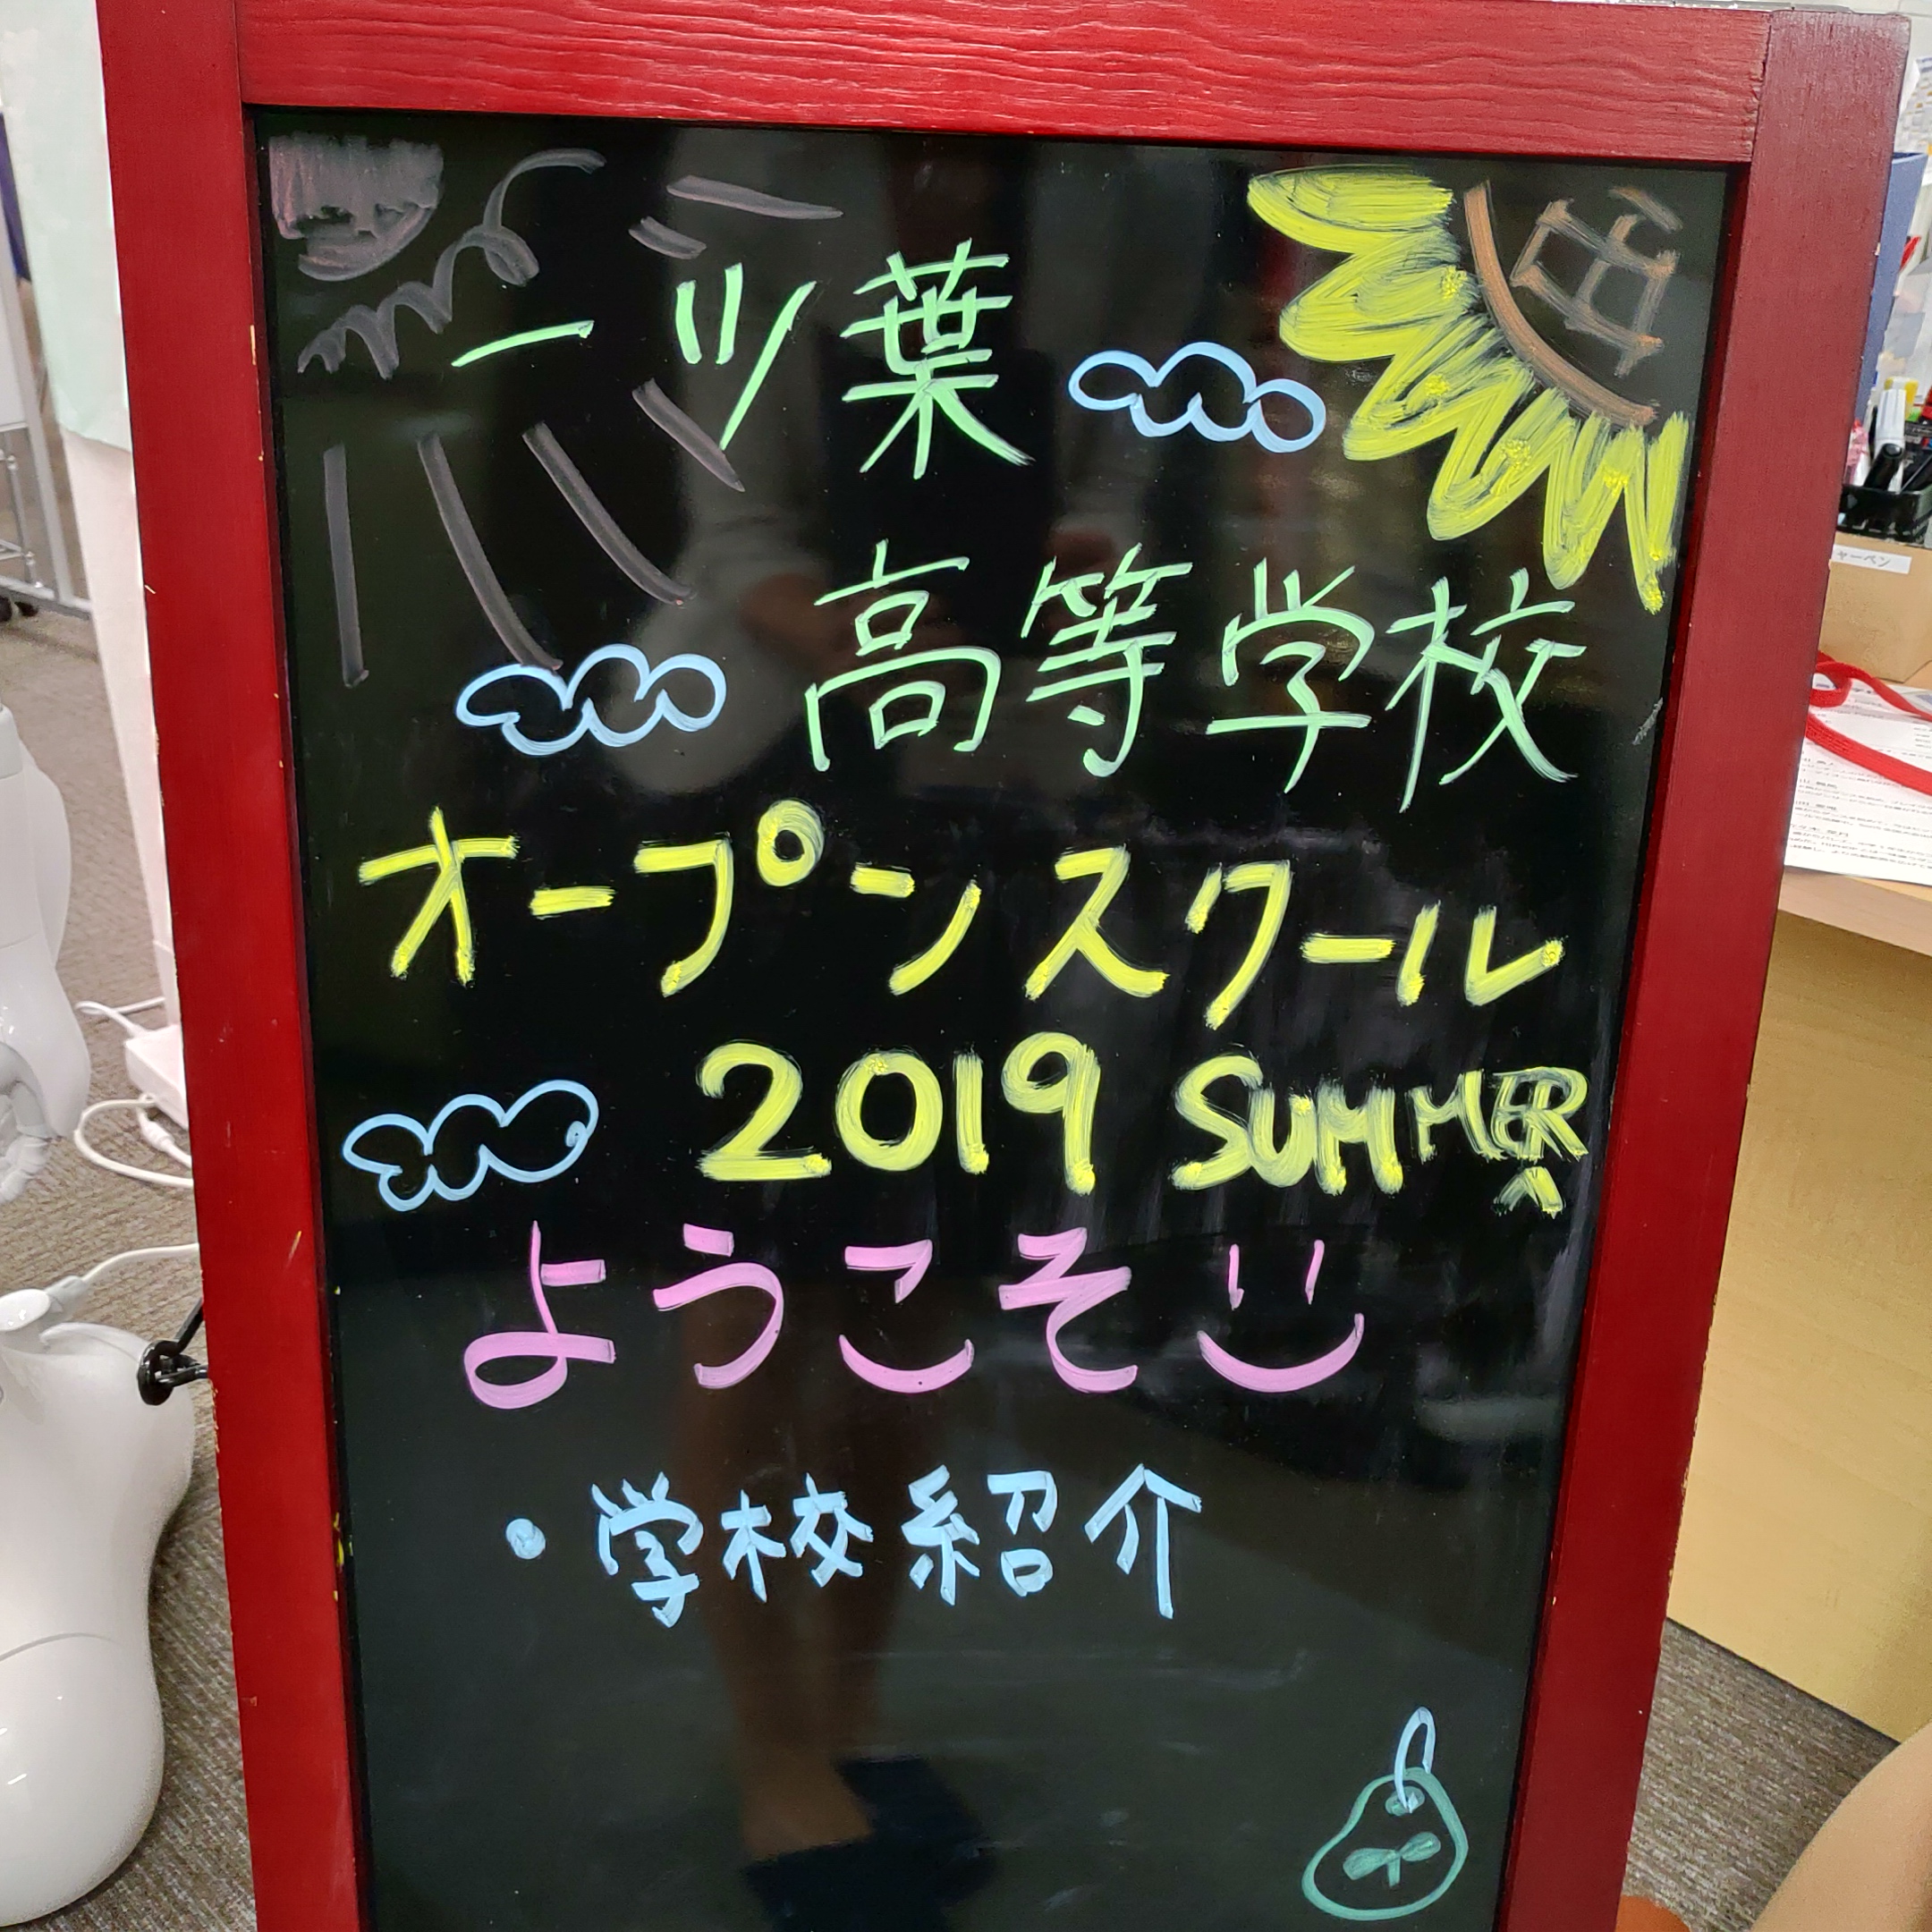 一ツ葉
高等学校
オープンスクール
2019 SUMMER
ようこそ
・学校紹介